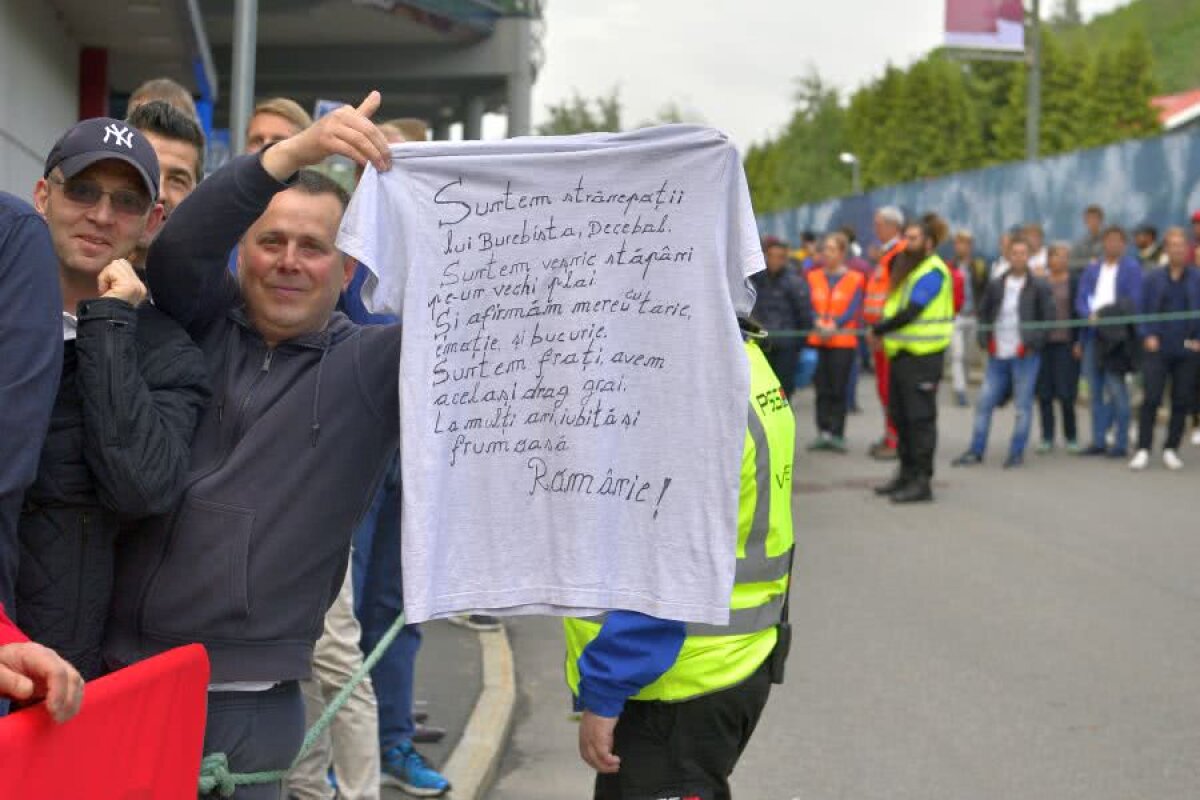 NY
Suntem strănepații
lui Burebista, Decebal.
Suntem veșnic stăpâni
pe-un vechi plai
Și afirmăm mereu cu tărie,
emoție și bucurie.
Suntem frați, avem
același drag grai.
La mulți ani, iubită și
frumoasă
România!